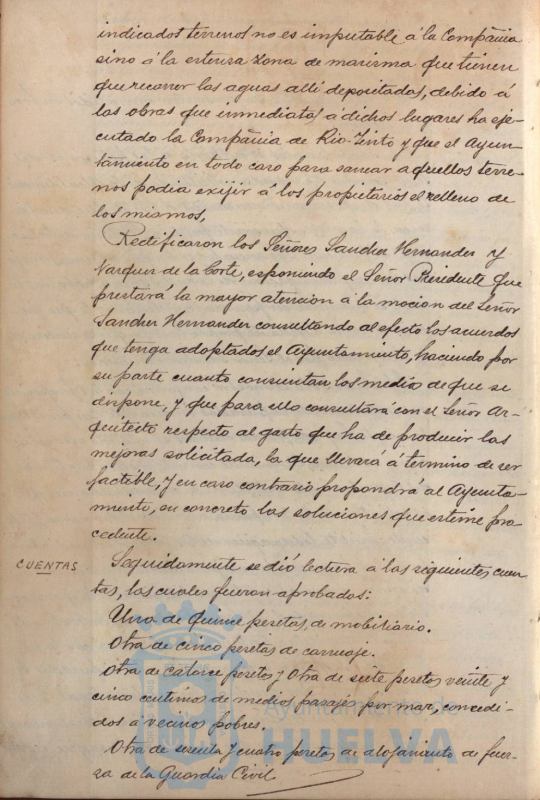 indicados terrenos no es imputable á la Compañia
sino á la estensa zona de marisma que tienen
que recorrer las aguas alli depositadas, debido á
las obras que inmediatas á dichos lugares ha eje-
cutado la Compañia de Rio-Tinto y que el Ayun-
tamiento en todo caso para sanear aquellos terre-
nos podia exijir á los propietarios el relleno de
los mismos,
Rectificaron los Señores Sanchez Hernandez y
Vazquez de la Corte, esponiendo el Señor Presidente que
prestará la mayor atencion á la mocion del Señor
Sanchez Hernandez consultando al efecto los acuerdos
que tenga adoptados el Ayuntamiento, haciendo por
su parte cuanto consientan los medios de que se
dispone, y que para ello consultará con el Señor Ar-
quitecto respecto al gasto que ha de producir las
mejoras solicitada, la que llevará á termino de ser
factible, y en caso contrario propondrá al Ayunta-
miento, en concreto las soluciones que estime pro-
cedente.
CUENTAS
Seguidamente se dió lectura á las siguientes cuen-
tas, las cuales fueron aprobadas:
Una de quince pesetas, de mobiliario.
Otra de cinco pesetas de carruaje.
Otra de catorce pesetas y otra de siete pesetas veinte y
cinco centimos de medios pasajes por mar, concedi-
dos á vecinos pobres.
Otra de sesenta y cuatro pesetas de alojamiento de fuer-
za de la Guardia Civil
Ayuntamiento
HUELVA